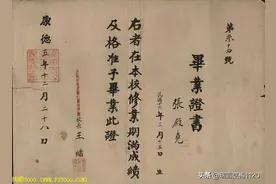 畢業證書
張殿堯
右者在本校修業期滿成績
及格准予畢業此證
校長王
康德五年十二月二十八日